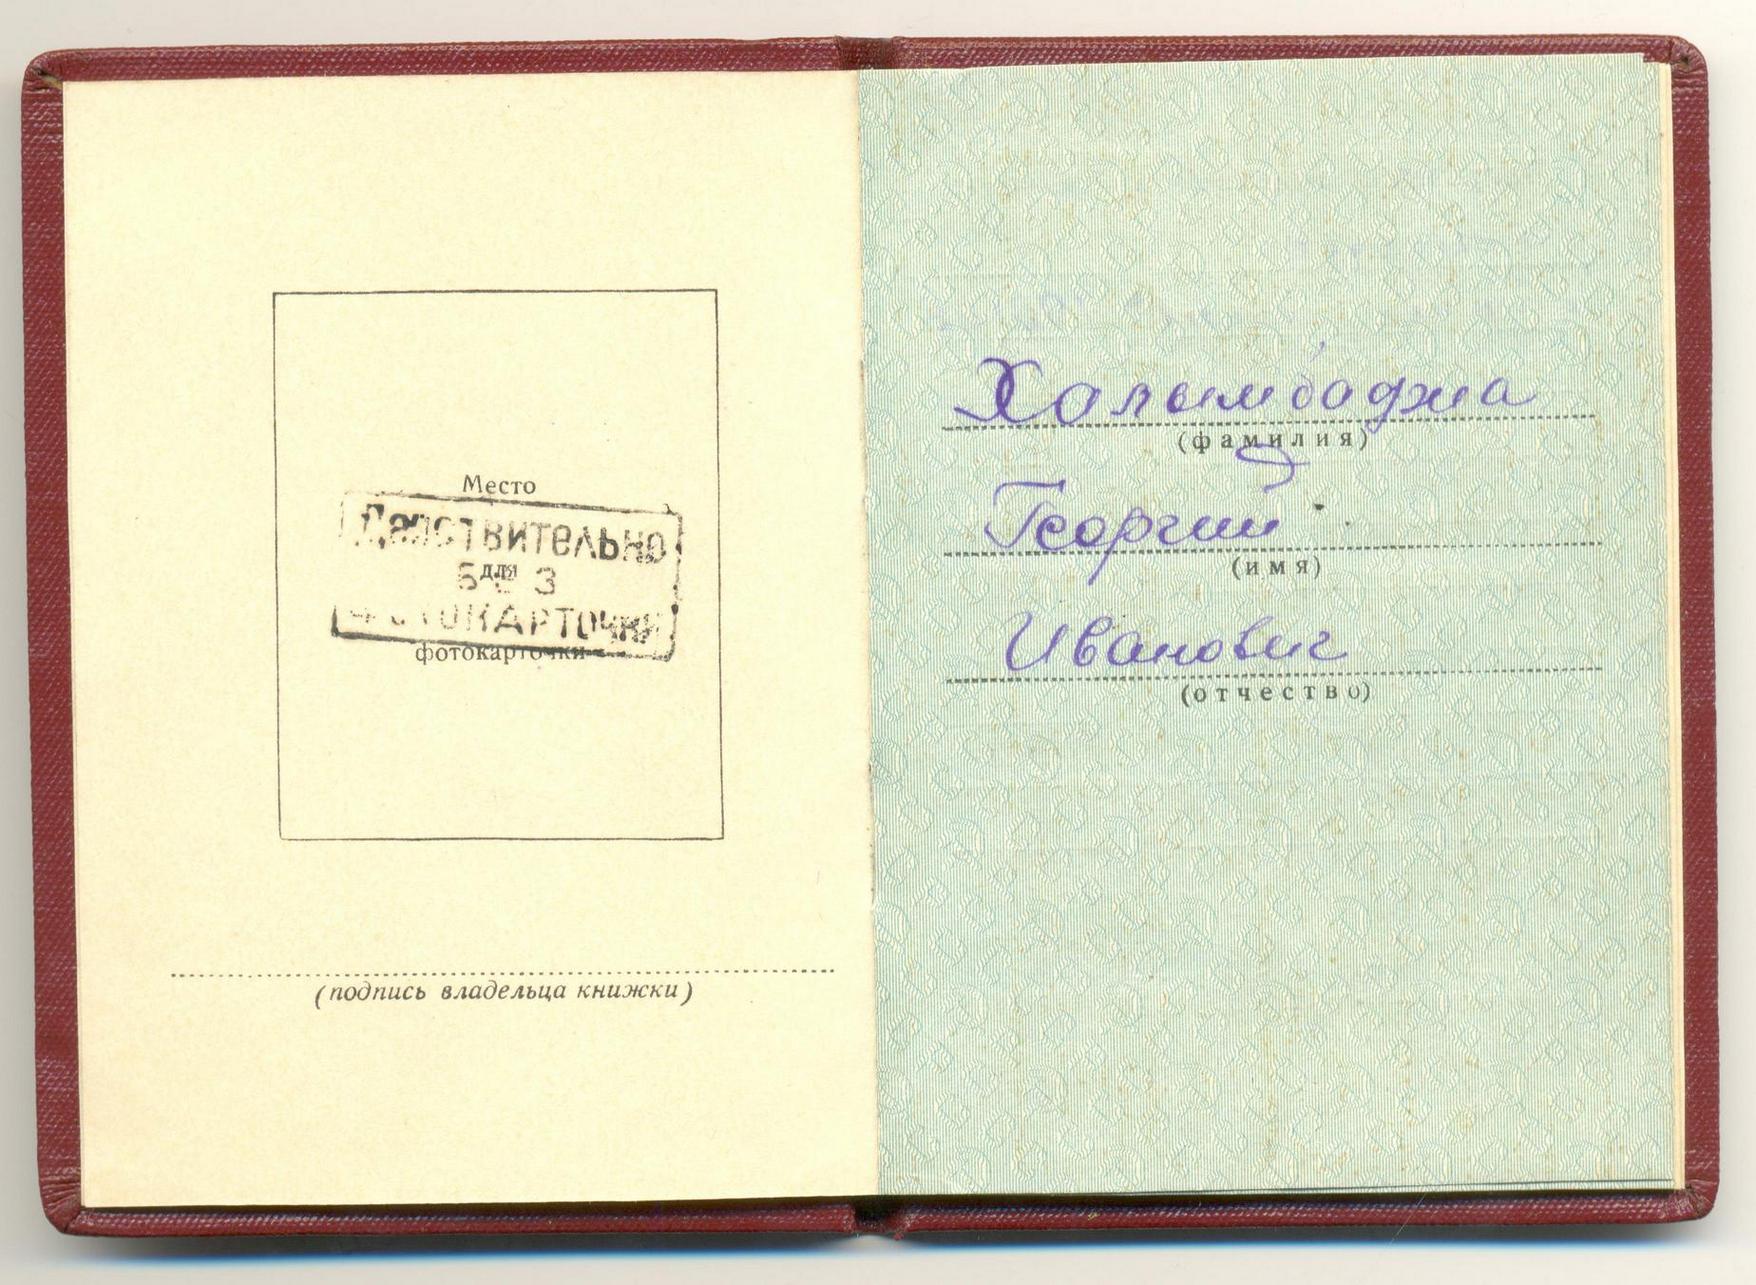 Место
Действительно
для
без
фотокарточки
фотокарточки
(подпись владельца книжки)
Халымбаджа
(фамилия)
Георгий
(имя)
Иванович
(отчество)